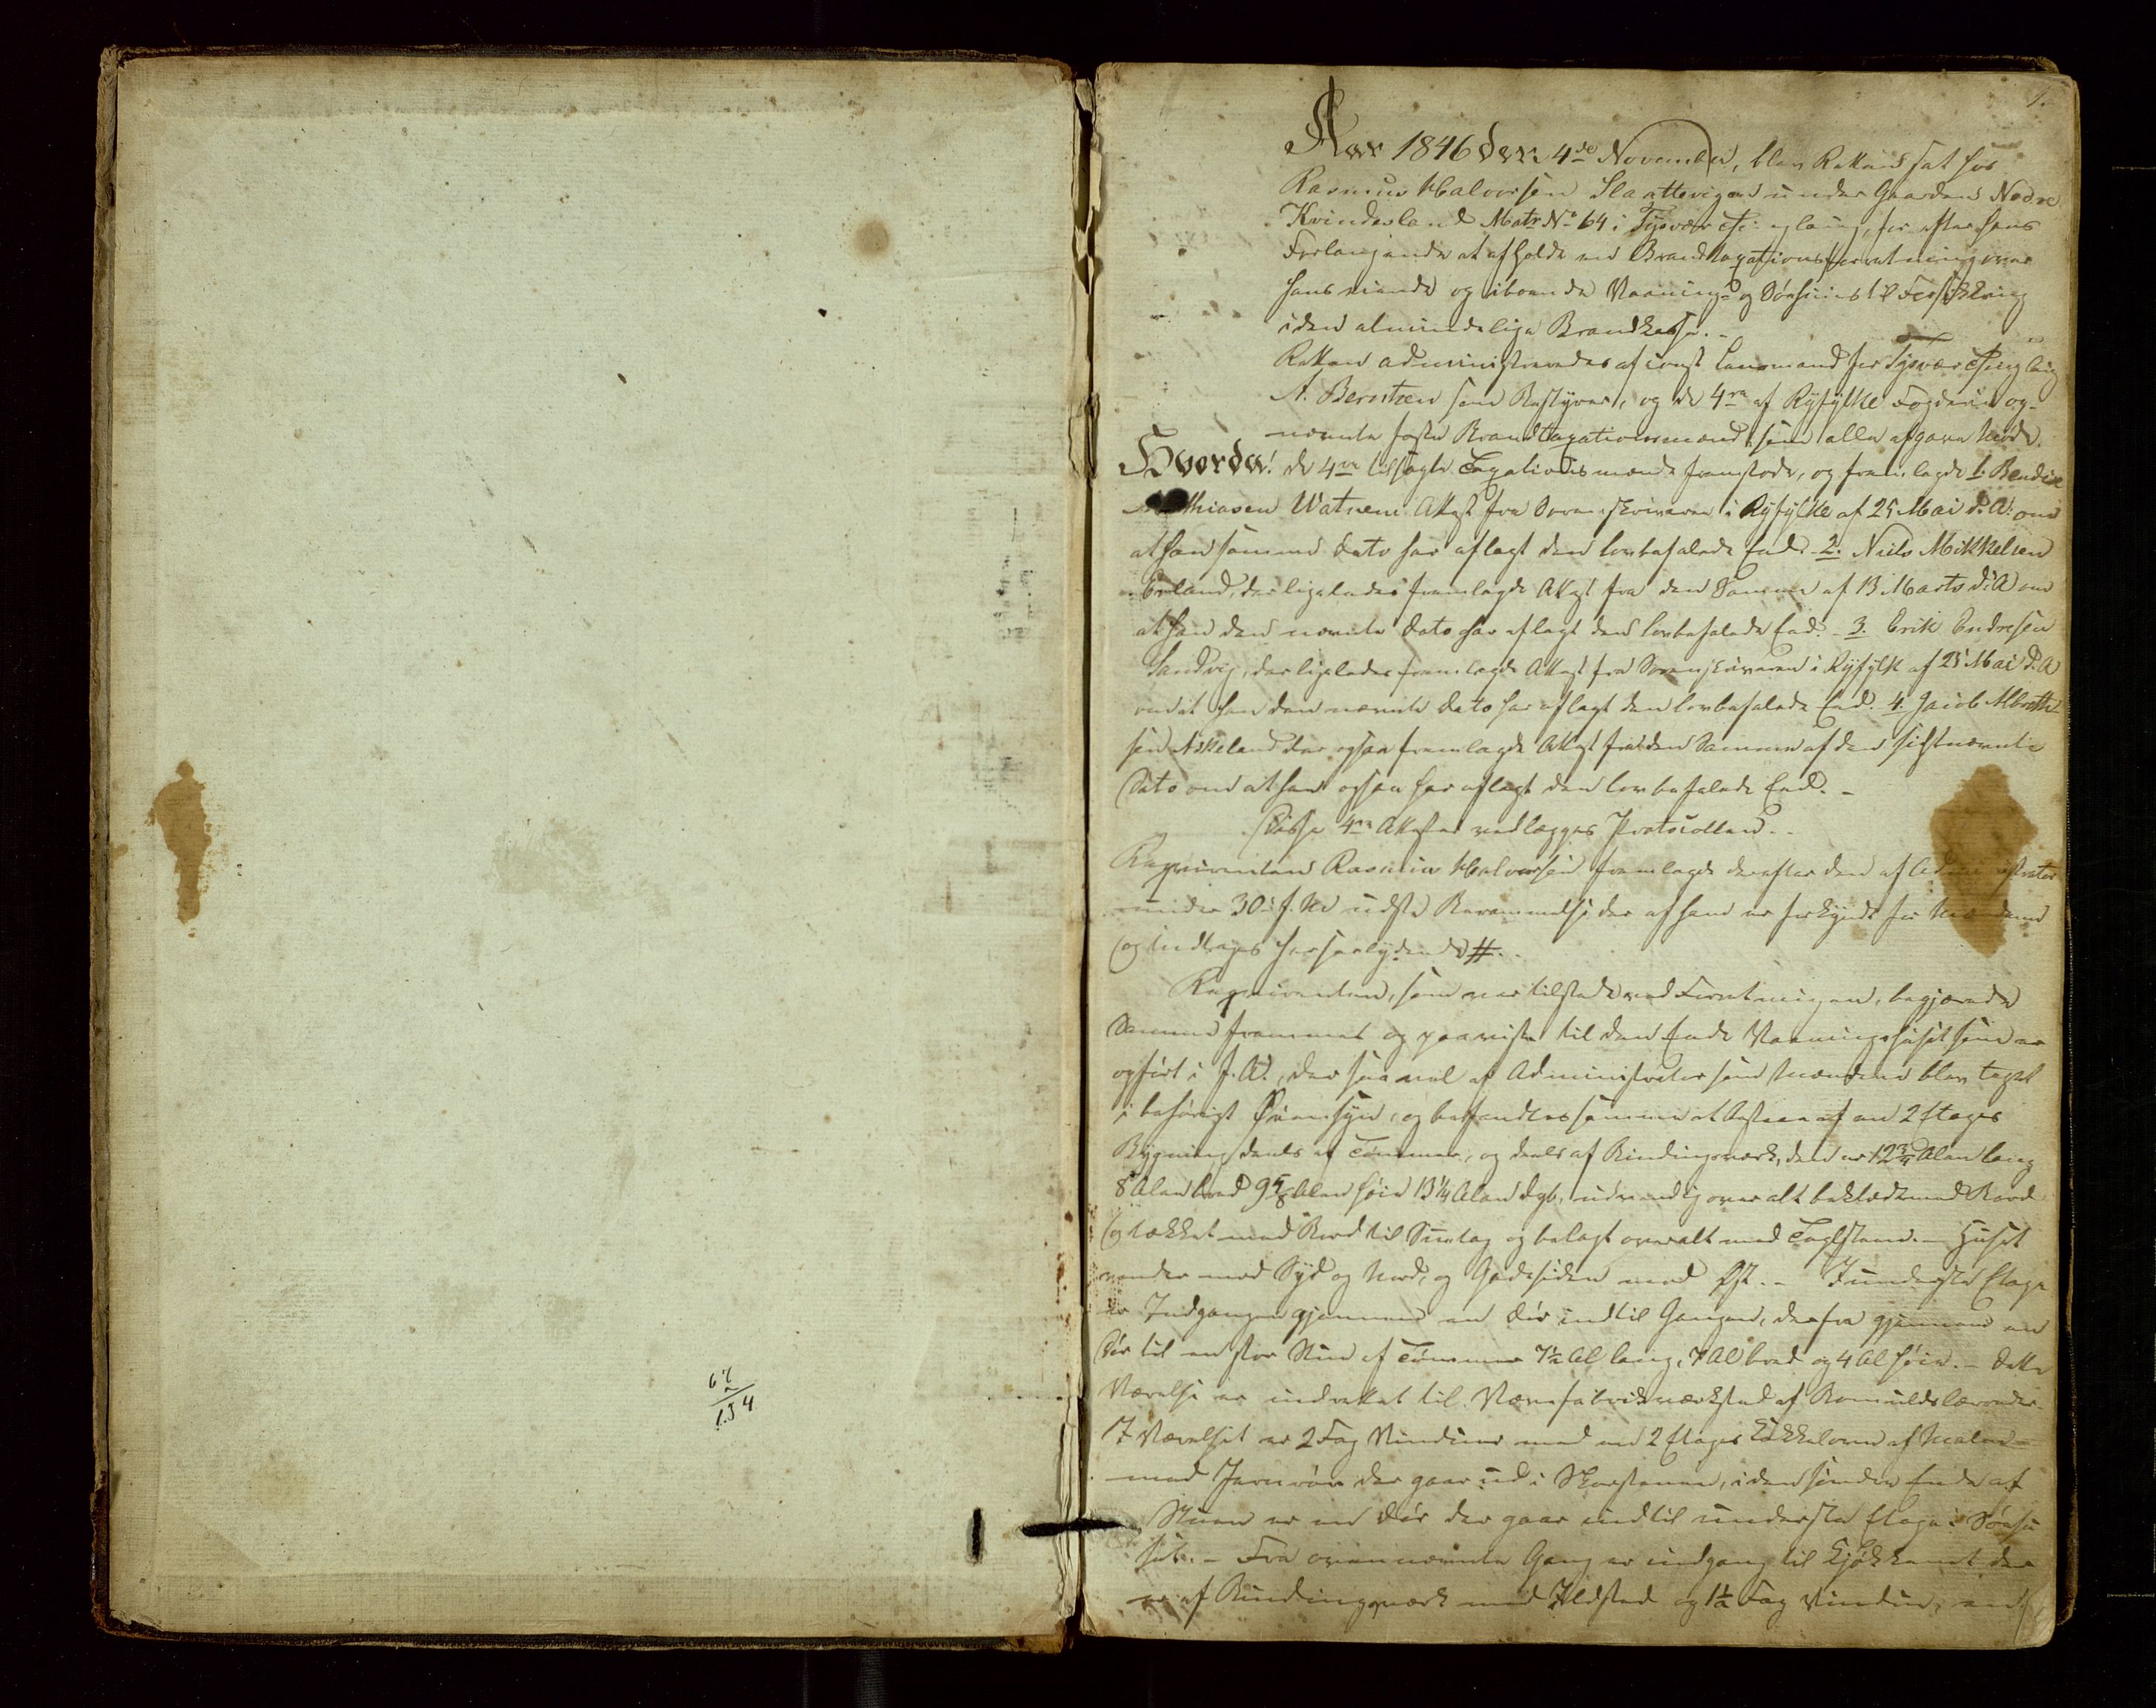 1.
Aar 1846 den 4de November, blev Retten sat hos
Rasmus Halvorsen Slaattevigen under Gaarden Nedre
Kvindesland Matr No 64 i Tysvær Thinglaug, for efter hans
Forlangende at afholde en Brandtaxationsforretning over
hans eiende og iboende Vaaning- og Søehuus til Forsikkring
i den almindelige Brandkasse. -
Retten administreredes af const Lensmand for Tysvær Thinglaug
A. Berntsen som Bestyrer, og de 4re af Ryfylke Fogderie op-
nævnte faste Brandtaxationsmænd som alle afgave Møde.
Hvorda! de 4re tilsagte Taxationsmænd fremstode, og fremlagde 1. Bendix
Mathiasen Watnem Attest fra Sorenskriveren i Ryfylke af 25 Mai d. A. om
at han samme Dato har aflagt den lovbefalede Eed. 2. Niels Mikkelsen
Erland, der ligeledes fremlagde Attest fra den Samme af 13 Marts d. A om
at han den nævnte Dato har aflagt den lovbefalede Eed. - 3. Erik Endresen
Sandvig, der ligeledes fremlagde Attest fra Sorenskriveren i Ryfylke af 25 Mai d. A
om at han den nævnte Dato har aflagt den lovbefalede Eed. 4. Jacob Albreth-
sen Askeland der ogsaa fremlagde Attest fra den Samme af den sistnævnte
Dato om at han ogsaa har aflagt den lovbefalede Eed. -
Disse 4re Attester vedlægges Protocollen. -
Reqvirenten Rasmus Halvorsen fremlagde derefter den af Administrator
under 30 f. M udstæ Berammelse der af ham er forkyndt for Mændene
og indtages her saalydende #. -
Reqvirenten, som var tilstede ved Forretningen, begjærede
Samme fremmet og paaviste til den Ende Vaaningshuset som er
opført i f. A., der saavel af Administrator som Mændene blev taget
i behørigt Øiensyn, og befandtes samme at bestaae af en 2 Etages
Bygning deels af Tømmer, og deels af Bindingsværk, den er 12 3/4 Alen lang
8 Alen bred 9 5/8 Alen høie 13 1/4 Alen dyb, udvendig overalt beklædt med Bord
og tækket med Bord til Suutag og belagt overalt med Taglsteen. - Huset
vender mod Syd og Nord, og Gadesiden mod Øst. - I underste Etage
er Indgangen gjennem en Dør ind til Gangen, derfra gjennem en
Dør til en stor Stue af Tømmer 7 1/2 Al lang, 7 Al bred og 4 Al høie. - Dette
Værelse er indrettet til
I Værelset er 2 Fag Vinduer med en 2 Etages Kakkelovn af Malm
med Jernrør der gaar ud i Skorstenen, i den søndre Ende af
Stuen er en Dør der gaar ind til underste Etage i Søehu-
set. - Fra ovennævnte Gang er indgang til Kjøkkenet der
er af Bindingsværk med Ildsted og 1 1/2 Fag Vindue, and
67
2
134